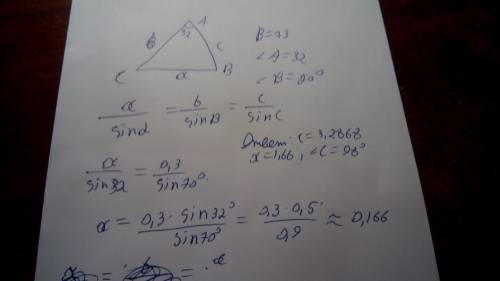 A
32
b
c
C
a
B
B=23
∠A=32
∠B=70°
a/sinα = b/sinB = c/sinC
Ответ: c=3,2868
x=1,66, ∠C=98°
a/sin32 = 0,3/sin70°
a = 0,3·sin32°/sin70° = 0,3·0,5/0,9 ≈ 0,166